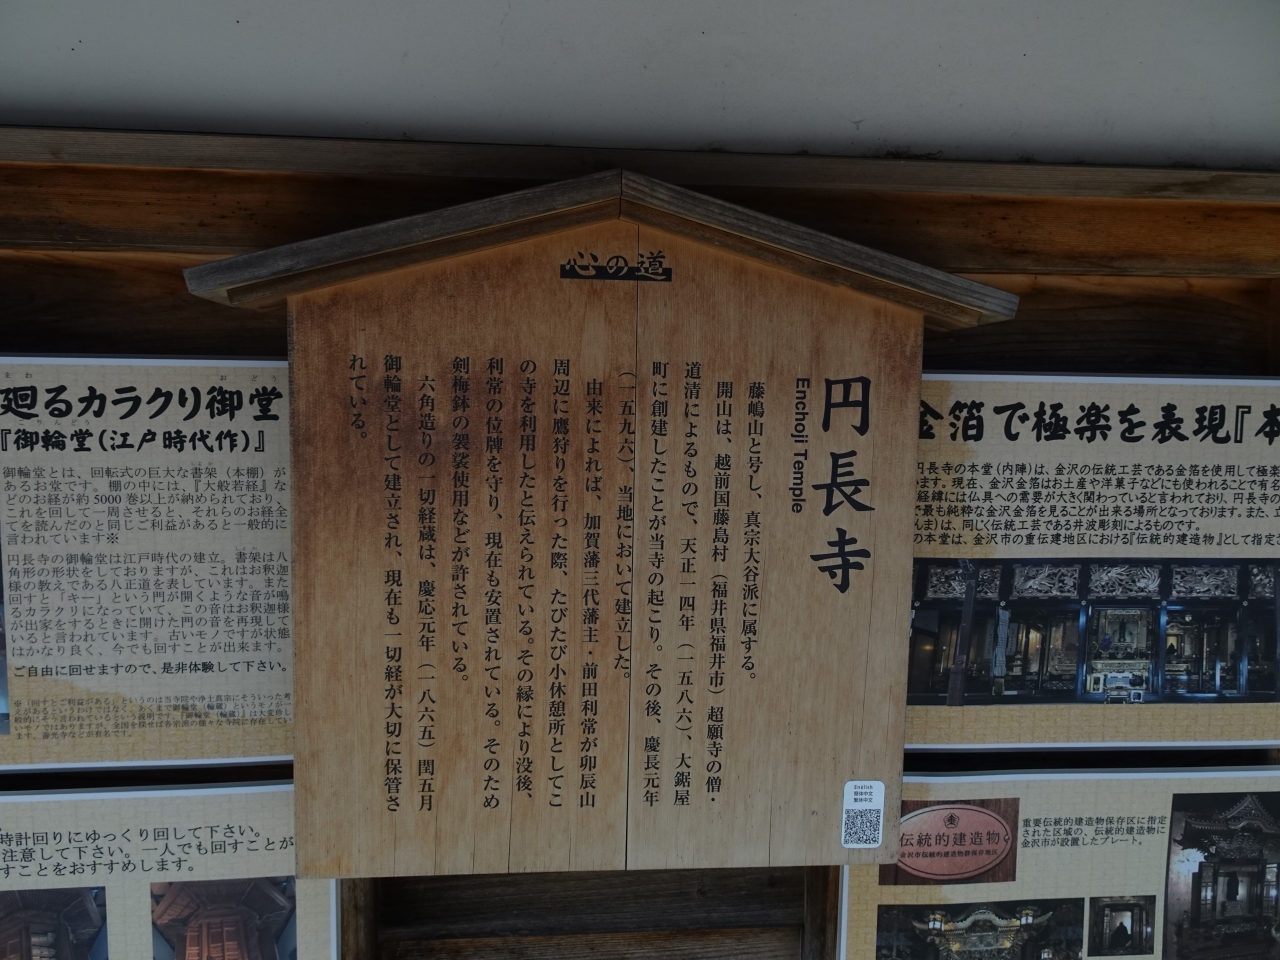 心の道
円長寺
Enchoji Temple
藤嶋山と号し、真宗大谷派に属する。
開山は、越前国藤島村（福井県福井市）超願寺の僧・
道清によるもので、天正一四年（一五八六）、大鋸屋
町に創建したことが当寺の起こり。その後、慶長元年
（一五九六）、当地において建立した。
由来によれば、加賀藩三代藩主・前田利常が卯辰山
周辺に鷹狩りを行った際、たびたび小休憩所としてこ
の寺を利用したと伝えられている。その縁により没後、
利常の位牌を守り、現在も安置されている。そのため
剣梅鉢の袈裟使用などが許されている。
六角造りの一切経蔵は、慶応元年（一八六五）閏五月
御輪堂として建立され、現在も一切経が大切に保管さ
れている。
English
簡体中文
繁体中文
廻るカラクリ御堂
『御輪堂（江戸時代作）』
御輪堂とは、回転式の巨大な書架（本棚）が
あるお堂です。棚の中には、『大般若経』な
どのお経が約5000巻以上が納められており、
これを回して一周させると、それらのお経全
てを読んだのと同じご利益があると一般的に
言われています※
円長寺の御輪堂は江戸時代の建立。書架は八
角形の形状をしておりますが、これはお釈迦
様の教えである八正道を表しています。また
回すと「キー」という門が開くような音が鳴
るカラクリになっていて、この音はお釈迦様
が出家をするときに開けた門の音を再現して
いると言われています。古いモノですが状態
はかなり良く、今でも回すことが出来ます。
ご自由に回せますので、是非体験して下さい。
時計回りにゆっくり回して下さい。
注意して下さい。一人でも回すことが
すことをおすすめします。
金箔で極楽を表現『本
円長寺の本堂（内陣）は、金沢の伝統工芸である金箔を使用して極楽
ます。現在、金沢金箔はお土産や洋菓子などにも使われることで有名
経緯には仏具への需要が大きく関わっていると言われており、円長寺の
で最も純粋な金沢金箔を見ることが出来る場所となっております。また、
んま）は、同じく伝統工芸である井波彫刻によるものです。
の本堂は、金沢市の重伝建地区における『伝統的建造物』として指定
伝統的建造物
金沢市伝統的建造物群保存地区
重要伝統的建造物保存区に指定
された区域の、伝統的建造物に
金沢市が設置したプレート。